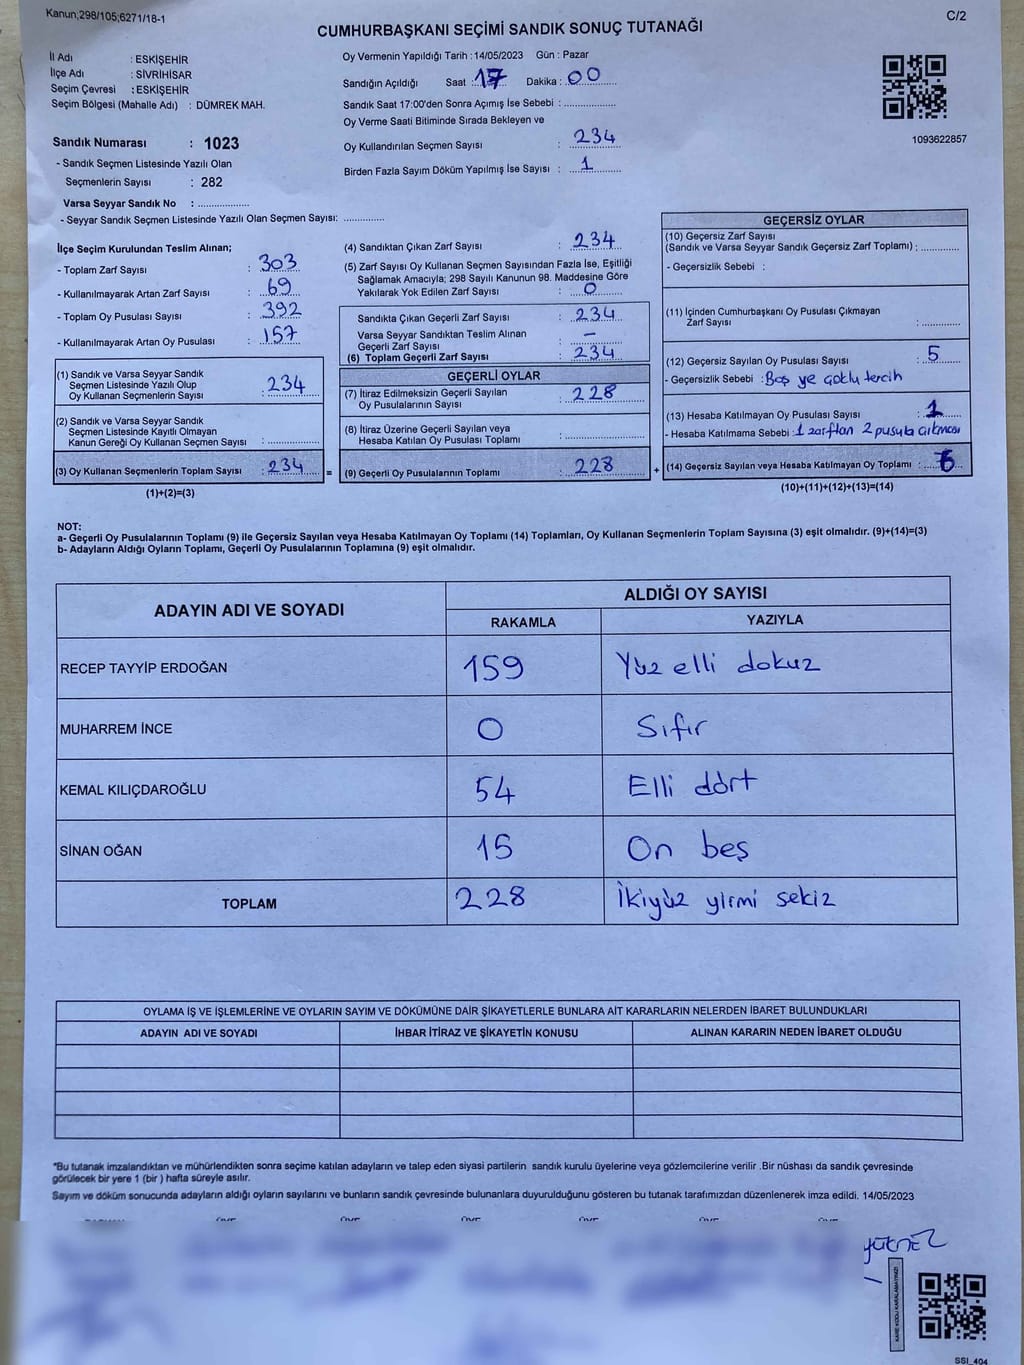 Kanun;298/105;6271/18-1
C/2
CUMHURBAŞKANI SEÇİMİ SANDIK SONUÇ TUTANAĞI
İl Adı : ESKİŞEHİR
İlçe Adı : SİVRİHİSAR
Seçim Çevresi : ESKİŞEHİR
Seçim Bölgesi (Mahalle Adı) : DÜMREK MAH.
Sandık Numarası : 1023
- Sandık Seçmen Listesinde Yazılı Olan
Seçmenlerin Sayısı : 282
Varsa Seyyar Sandık No : ..................
- Seyyar Sandık Seçmen Listesinde Yazılı Olan Seçmen Sayısı: ..............
Oy Vermenin Yapıldığı Tarih : 14/05/2023 Gün : Pazar
Sandığın Açıldığı Saat : 17 Dakika : 00
Sandık Saat 17:00'den Sonra Açımış İse Sebebi : ..................
Oy Verme Saati Bitiminde Sırada Bekleyen ve
Oy Kullandırılan Seçmen Sayısı : 234
Birden Fazla Sayım Döküm Yapılmış İse Sayısı : 1
1093622857
İlçe Seçim Kurulundan Teslim Alınan;
- Toplam Zarf Sayısı : 303
- Kullanılmayarak Artan Zarf Sayısı : 69
- Toplam Oy Pusulası Sayısı : 392
- Kullanılmayarak Artan Oy Pusulası : 157
(1) Sandık ve Varsa Seyyar Sandık
Seçmen Listesinde Yazılı Olup
Oy Kullanan Seçmenlerin Sayısı : 234
(2) Sandık ve Varsa Seyyar Sandık
Seçmen Listesinde Kayıtlı Olmayan
Kanun Gereği Oy Kullanan Seçmen Sayısı : ..................
(3) Oy Kullanan Seçmenlerin Toplam Sayısı : 234 =
(1)+(2)=(3)
(4) Sandıktan Çıkan Zarf Sayısı : 234
(5) Zarf Sayısı Oy Kullanan Seçmen Sayısından Fazla İse, Eşitliği
Sağlamak Amacıyla; 298 Sayılı Kanunun 98. Maddesine Göre
Yakılarak Yok Edilen Zarf Sayısı : 0
Sandıkta Çıkan Geçerli Zarf Sayısı : 234
Varsa Seyyar Sandıktan Teslim Alınan
Geçerli Zarf Sayısı : —
(6) Toplam Geçerli Zarf Sayısı : 234
GEÇERLİ OYLAR
(7) İtiraz Edilmeksizin Geçerli Sayılan
Oy Pusulalarının Sayısı : 228
(8) İtiraz Üzerine Geçerli Sayılan veya
Hesaba Katılan Oy Pusulası Toplamı : ..................
(9) Geçerli Oy Pusulalarının Toplamı : 228 +
GEÇERSİZ OYLAR
(10) Geçersiz Zarf Sayısı
(Sandık ve Varsa Seyyar Sandık Geçersiz Zarf Toplamı) : ..............
- Geçersizlik Sebebi :
(11) İçinden Cumhurbaşkanı Oy Pusulası Çıkmayan
Zarf Sayısı : ..............
(12) Geçersiz Sayılan Oy Pusulası Sayısı : 5
- Geçersizlik Sebebi : Boş ve çoklu tercih
(13) Hesaba Katılmayan Oy Pusulası Sayısı : 1
- Hesaba Katılmama Sebebi : 1 zarftan 2 pusula çıkması
(14) Geçersiz Sayılan veya Hesaba Katılmayan Oy Toplamı : 6
(10)+(11)+(12)+(13)=(14)
NOT:
a- Geçerli Oy Pusulalarının Toplamı (9) ile Geçersiz Sayılan veya Hesaba Katılmayan Oy Toplamı (14) Toplamları, Oy Kullanan Seçmenlerin Toplam Sayısına (3) eşit olmalıdır. (9)+(14)=(3)
b- Adayların Aldığı Oyların Toplamı, Geçerli Oy Pusulalarının Toplamına (9) eşit olmalıdır.
ADAYIN ADI VE SOYADI
ALDIĞI OY SAYISI
RAKAMLA YAZIYLA
RECEP TAYYİP ERDOĞAN 159 Yüz elli dokuz
MUHARREM İNCE 0 Sıfır
KEMAL KILIÇDAROĞLU 54 Elli dört
SİNAN OĞAN 15 On beş
TOPLAM 228 İkiyüz yirmi sekiz
OYLAMA İŞ VE İŞLEMLERİNE VE OYLARIN SAYIM VE DÖKÜMÜNE DAİR ŞİKAYETLERLE BUNLARA AİT KARARLARIN NELERDEN İBARET BULUNDUKLARI
ADAYIN ADI VE SOYADI İHBAR İTİRAZ VE ŞİKAYETİN KONUSU ALINAN KARARIN NEDEN İBARET OLDUĞU
*Bu tutanak imzalandıktan ve mühürlendikten sonra seçime katılan adayların ve talep eden siyasi partilerin sandık kurulu üyelerine veya gözlemcilerine verilir .Bir nüshası da sandık çevresinde
görülecek bir yere 1 (bir ) hafta süreyle asılır.
Sayım ve döküm sonucunda adayların aldığı oyların sayılarını ve bunların sandık çevresinde bulunanlara duyurulduğunu gösteren bu tutanak tarafımızdan düzenlenerek imza edildi. 14/05/2023
ÜYE ÜYE ÜYE ÜYE ÜYE ÜYE
KARE KODU KARALAMAYINIZ!
SSI_404